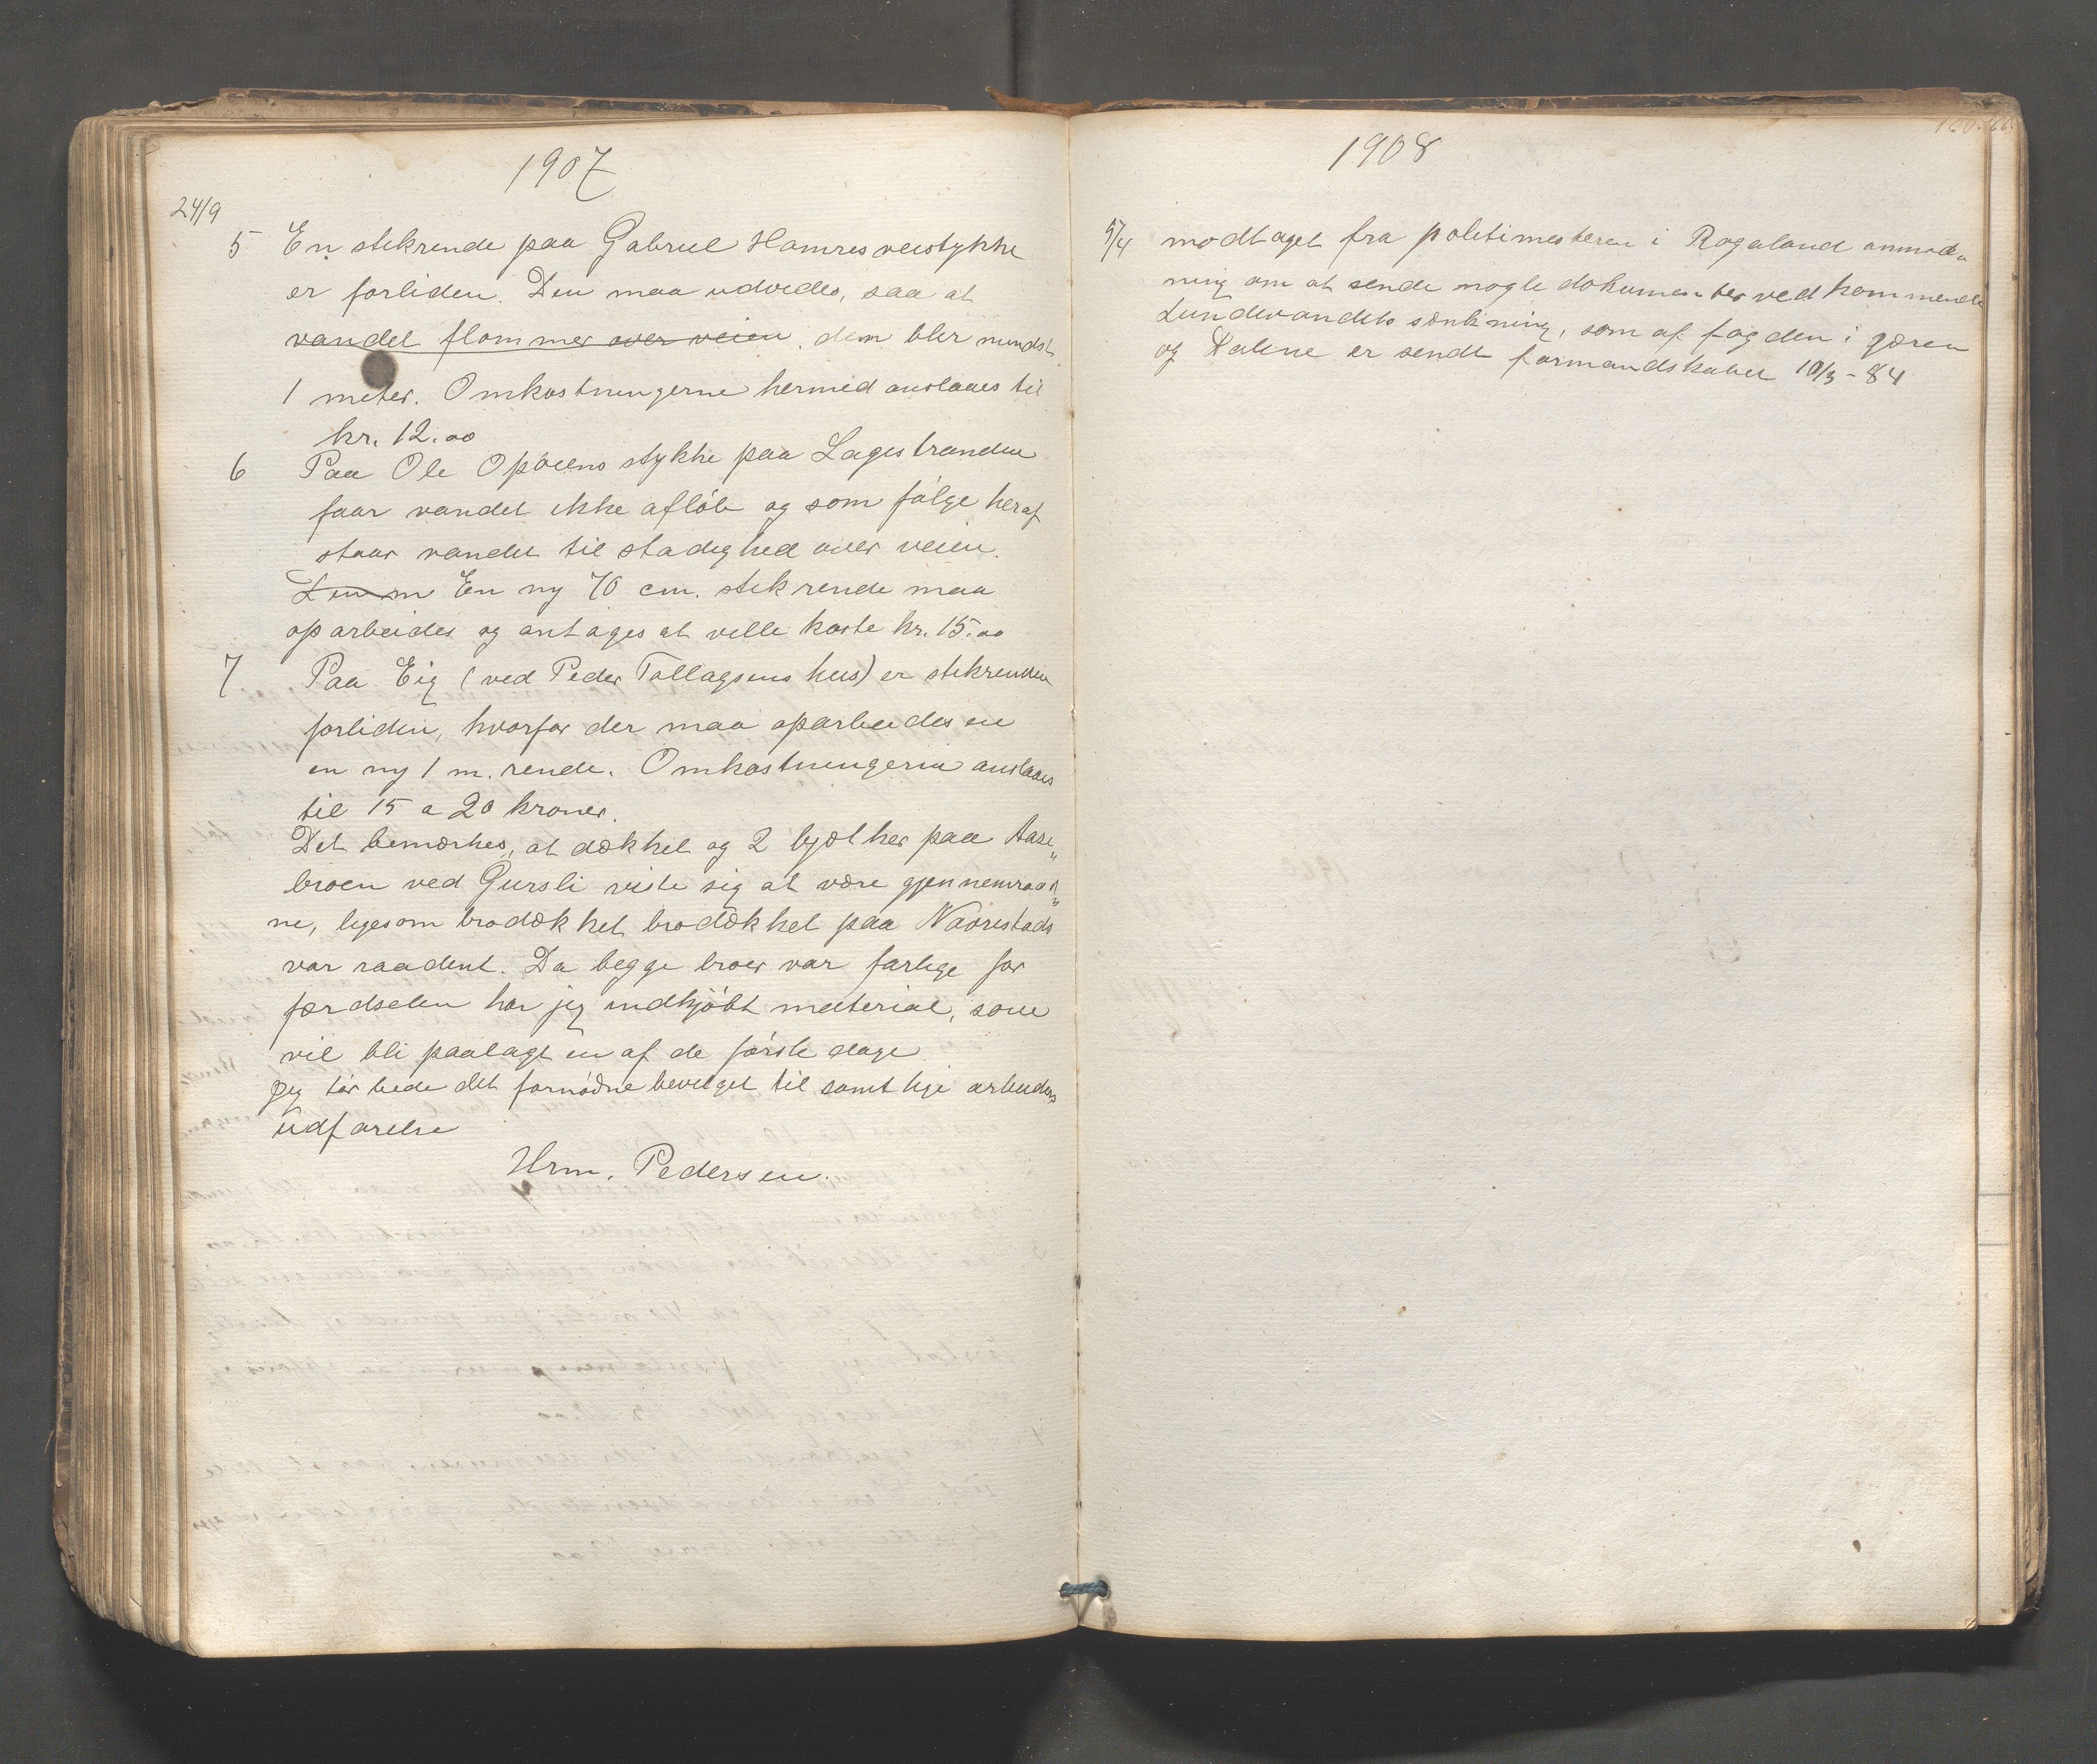 1907
24/9
5 En stikrende paa Gabriel Hamres veistykke
er forliden. Den maa udvides, saa at
vandet flommer over veien. den blir mindst
1 meter. Omkostningerne hermed anslaaes til
kr. 12.00
6 Paa Ole Opøiens stykke paa Lagestranden
faar vandet ikke afløb og som følge heraf
staar vandet til stadighed over veien.
Den m En ny 70 cm. stikrende maa
oparbeides og antages at ville koste kr. 15.00
7 Paa Eig (ved Peder Tollagsens hus) er stikrenden
forliden, hvorfor der maa oparbeides en
en ny 1 m. rende. Omkostningerne anslaaes
til 15 a 20 kroner.
Det bemærkes, at dækket og 2 bjælker paa Aase„
broen ved Gursli viste sig at være gjennemraad„
ne, ligesom brodækket brodækket paa Naarestads
var raadent. Da begge broer var farlige for
færdselen har jeg indkjøbt material, som
vil bli paalagt en af de første dage.
Jeg tør bede det fornødne bevilget til samtlige arbeiders
udførelse
Hrm. Pedersen.
1908
5/4 modtaget fra politimesteren i Rogaland anmod„
ning om at sende nogle dokumenter vedkommende
Lundevandets sænkning, som af fogden i Jæren
og Dalene er sendt formandskabet 10/3 - 84